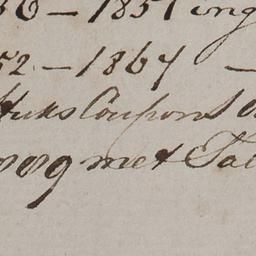 36 – 1851 ing
52 – 1867 –
stuks Coupons
nog met Tal